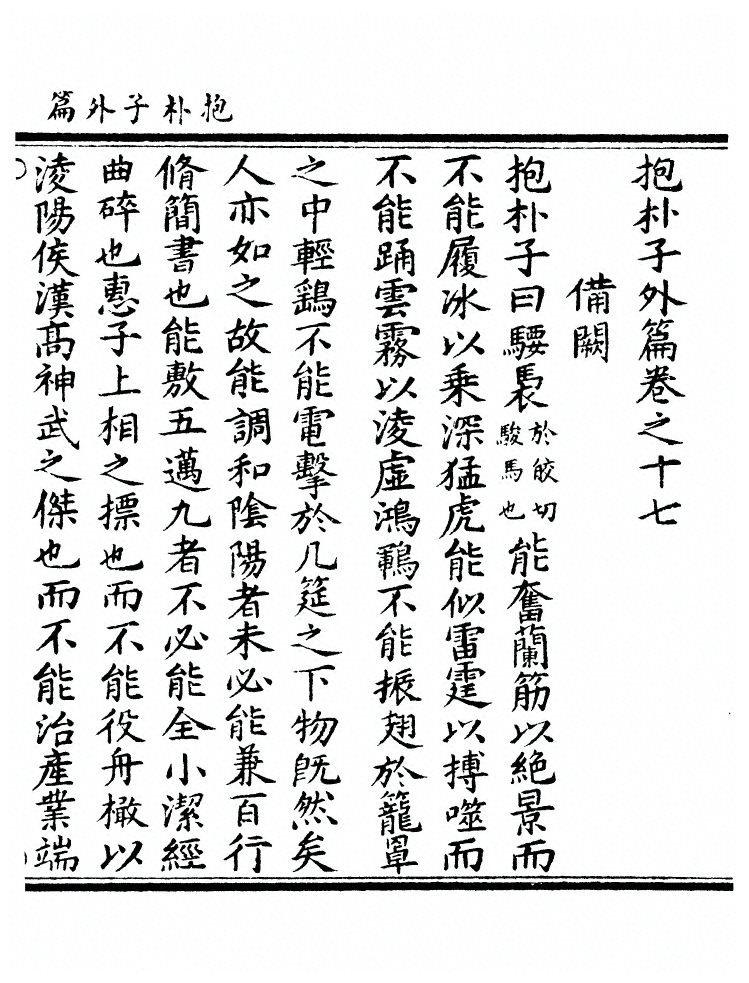 抱朴子外篇
抱朴子外篇卷之十七
備闕
抱朴子曰騕褭於皎切駿馬也能奮蘭筋以絶景而
不能履冰以乗深猛虎能似雷霆以搏噬而
不能踊雲霧以淩虛鴻鶤不能振翅於籠罩
之中輕鷂不能電擊於几筵之下物旣然矣
人亦如之故能調和陰陽者未必能兼百行
脩簡書也能敷五邁九者不必能全小潔經
曲碎也惠子上相之摽也而不能役舟檝以
淩陽侯漢高神武之傑也而不能治產業端